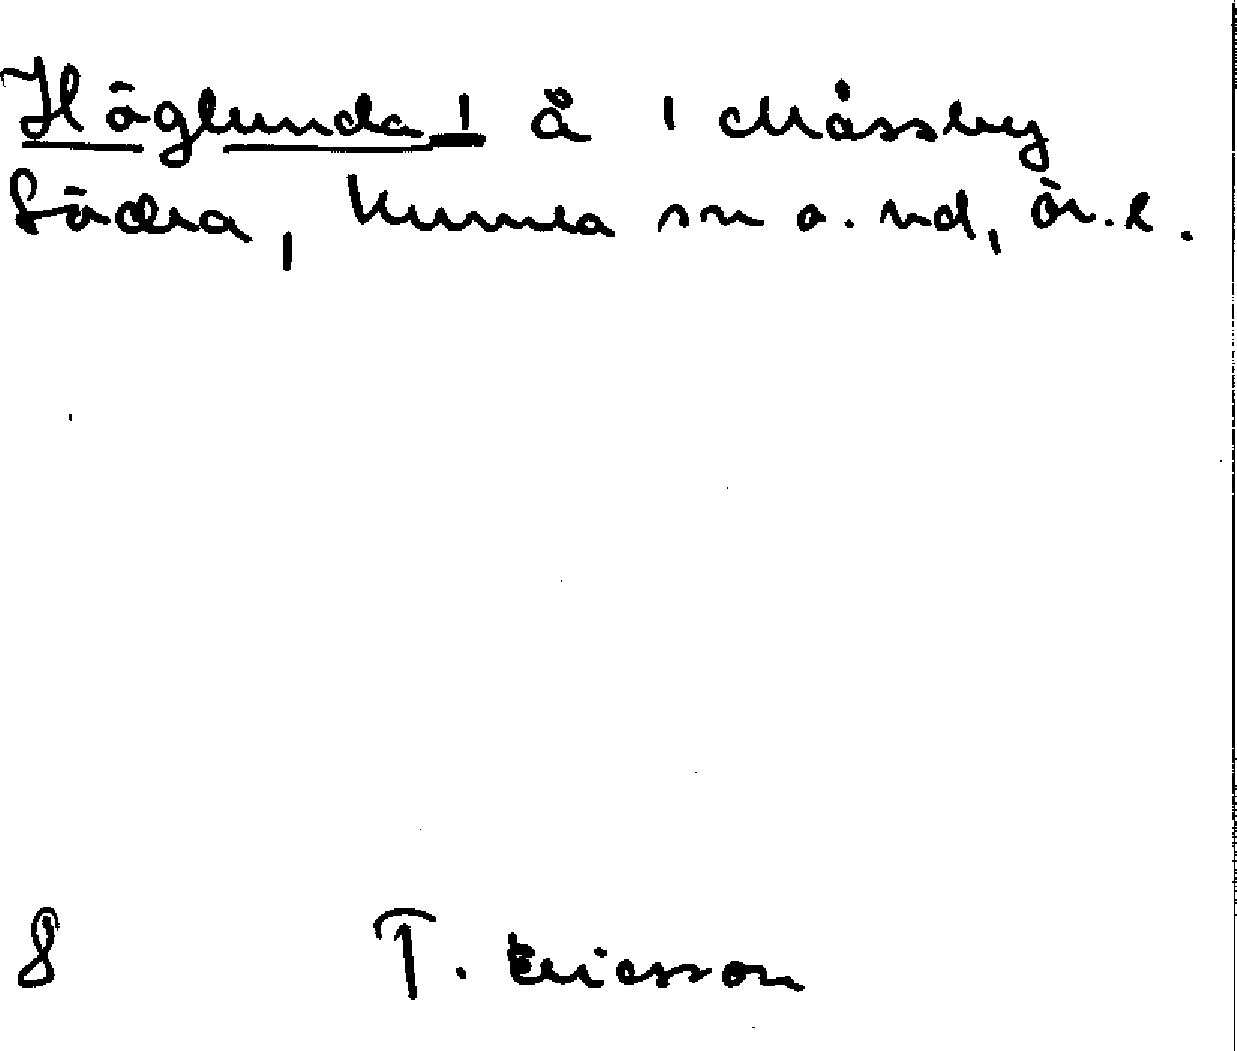 Höglunda 1 å 1 Måssby
Södra, Kumla sn o. hd, Ör. l.
8 T. Ericsson